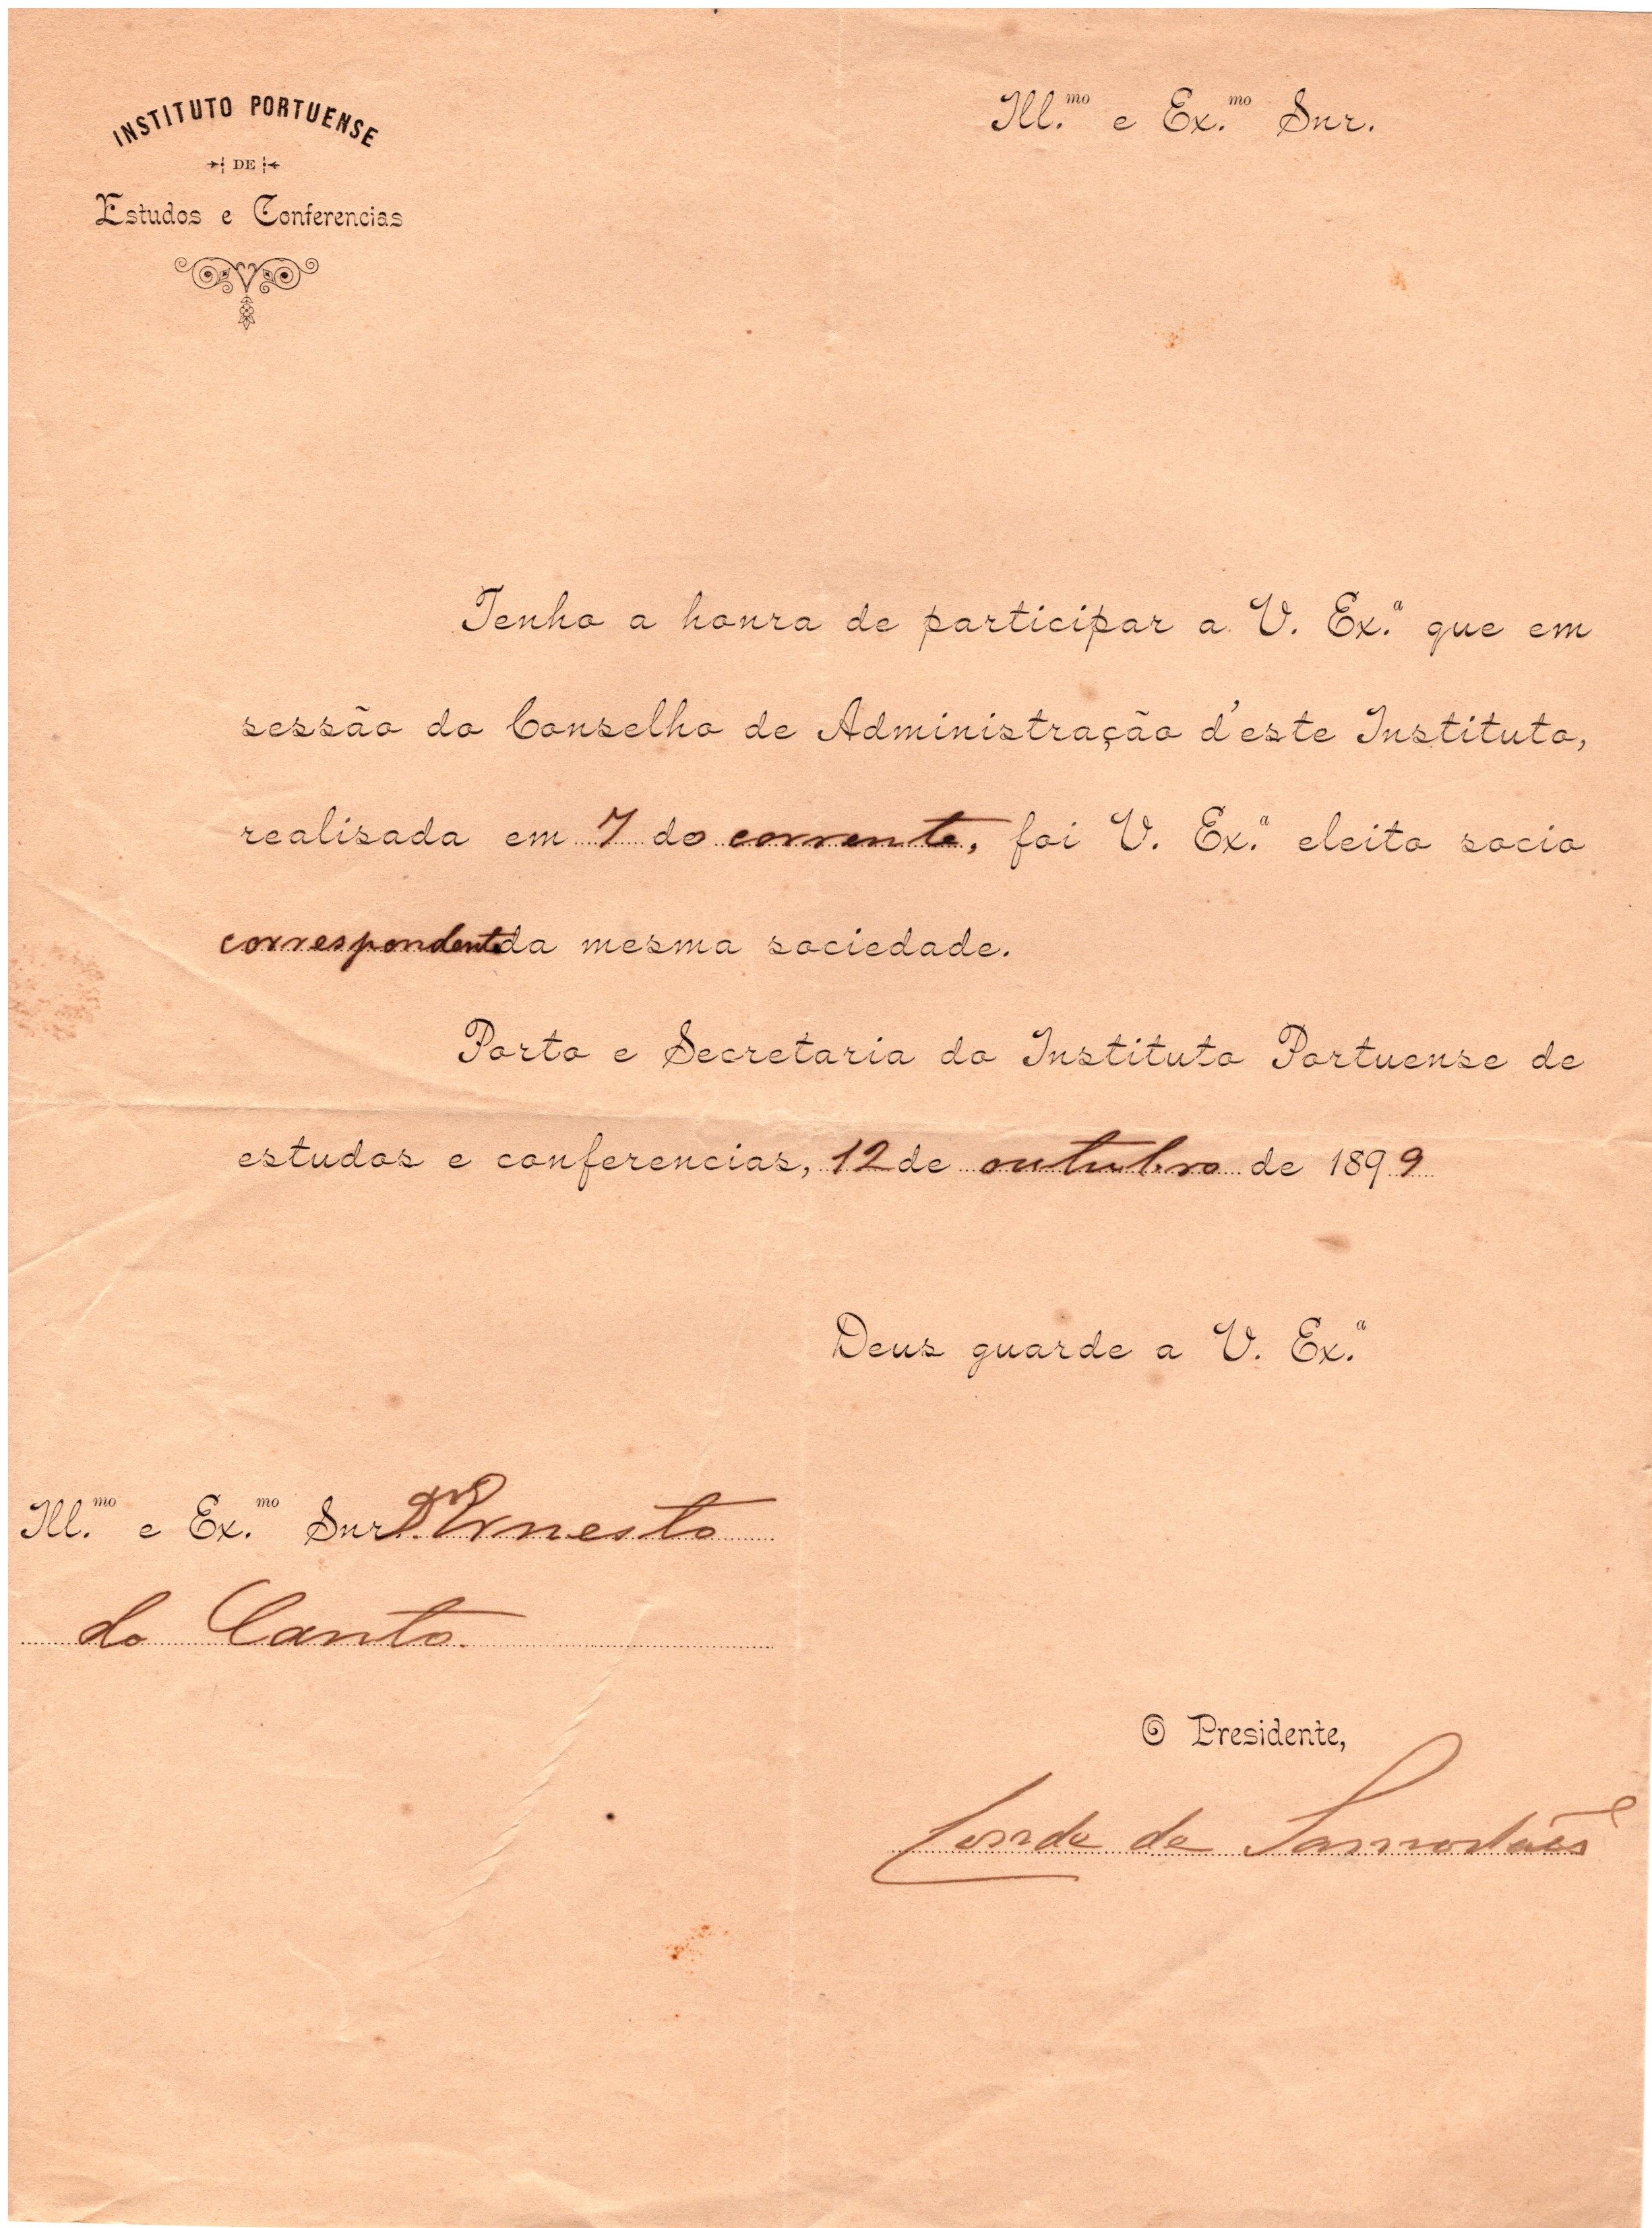 INSTITUTO PORTUENSE
DE
Estudos e Conferencias
Ill.mo e Ex.mo Snr.
Tenho a honra de participar a V. Ex.a que em
sessão do Conselho de Administração d'este Instituto,
realisada em 7 do corrente, foi V. Ex.a eleito socio
correspondente da mesma sociedade.
Porto e Secretaria do Instituto Portuense de
estudos e conferencias, 12 de outubro de 1899
Deus guarde a V. Ex.a
Ill.mo e Ex.mo Snr. Dr. Ernesto
do Canto.
O Presidente,
Conde de Samodães